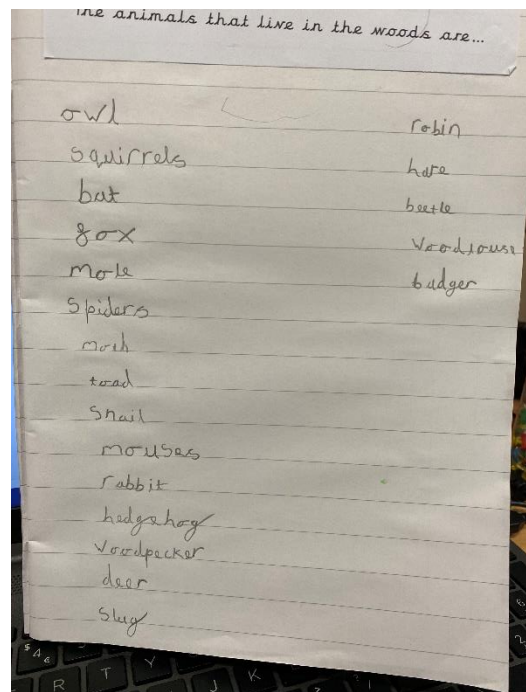 The animals that live in the woods are...
owl
squirrels
bat
fox
mole
spiders
moth
toad
snail
mouses
rabbit
hedgehog
voodpecker
deer
slug
robin
hare
beetle
voodlouse
badger
$ 4 €
R T Y
J K